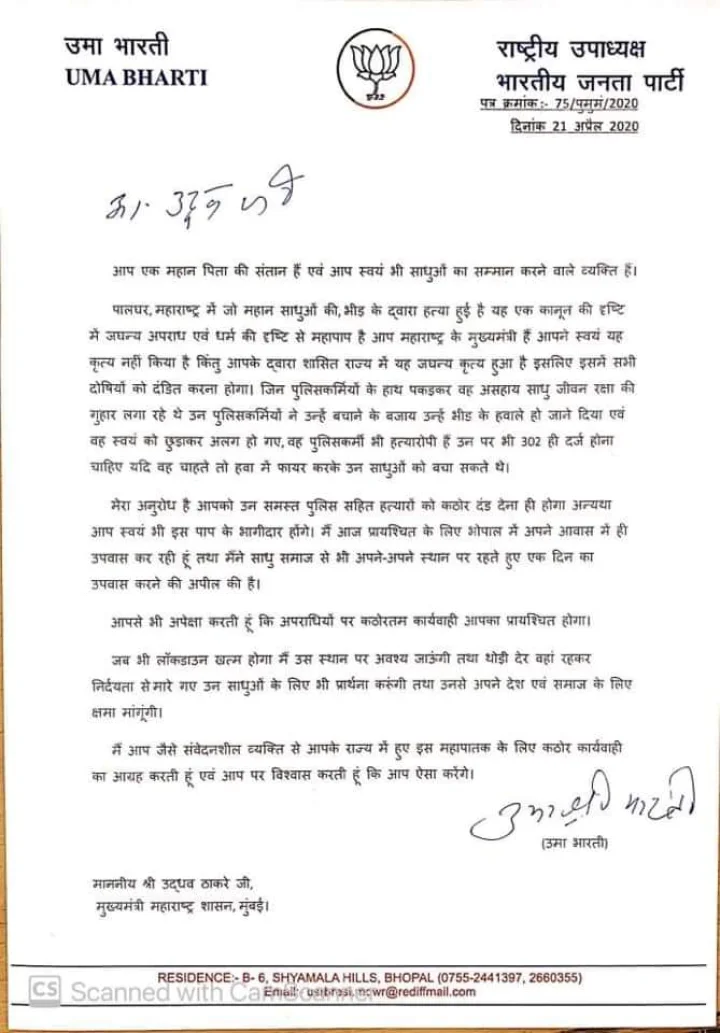 उमा भारती
UMA BHARTI
राष्ट्रीय उपाध्यक्ष
भारतीय जनता पार्टी
पत्र क्रमांक:- 75/पुमुमं/2020
दिनांक 21 अप्रैल 2020
आप एक महान पिता की संतान हैं एवं आप स्वयं भी साधुओं का सम्मान करने वाले व्यक्ति हैं।
पालघर, महाराष्ट्र में जो महान साधुओं की, भीड के द्वारा हत्या हुई है यह एक कानून की दृष्टि
में जघन्य अपराध एवं धर्म की दृष्टि से महापाप है आप महाराष्ट्र के मुख्यमंत्री हैं आपने स्वयं यह
कृत्य नहीं किया है किंतु आपके द्वारा शासित राज्य में यह जघन्य कृत्य हुआ है इसलिए इसमें सभी
दोषियों को दंडित करना होगा। जिन पुलिसकर्मियों के हाथ पकड़कर वह असहाय साधु जीवन रक्षा की
गुहार लगा रहे थे उन पुलिसकर्मियों ने उन्हें बचाने के बजाय उन्हें भीड के हवाले हो जाने दिया एवं
वह स्वयं को छुडाकर अलग हो गए, वह पुलिसकर्मी भी हत्यारोपी हैं उन पर भी 302 ही दर्ज होना
चाहिए यदि वह चाहते तो हवा में फायर करके उन साधुओं को बचा सकते थे।
मेरा अनुरोध है आपको उन समस्त पुलिस सहित हत्यारों को कठोर दंड देना ही होगा अन्यथा
आप स्वयं भी इस पाप के भागीदार होंगे। मैं आज प्रायश्चित के लिए भोपाल में अपने आवास में ही
उपवास कर रही हूं तथा मैंने साधु समाज से भी अपने-अपने स्थान पर रहते हुए एक दिन का
उपवास करने की अपील की है।
आपसे भी अपेक्षा करती हूं कि अपराधियों पर कठोरतम कार्यवाही आपका प्रायश्चित होगा।
जब भी लॉकडाउन खत्म होगा मैं उस स्थान पर अवश्य जाऊंगी तथा थोड़ी देर वहां रहकर
निर्दयता से मारे गए उन साधुओं के लिए भी प्रार्थना करूंगी तथा उनसे अपने देश एवं समाज के लिए
क्षमा मांगूंगी।
मैं आप जैसे संवेदनशील व्यक्ति से आपके राज्य में हुए इस महापातक के लिए कठोर कार्यवाही
का आग्रह करती हूं एवं आप पर विश्वास करती हूं कि आप ऐसा करेंगे।
उमा भारती
(उमा भारती)
माननीय श्री उद्धव ठाकरे जी,
मुख्यमंत्री महाराष्ट्र शासन, मुंबई।
RESIDENCE:- B- 6, SHYAMALA HILLS, BHOPAL (0755-2441397, 2660355)
Email:
CS Scanned with CamScanner